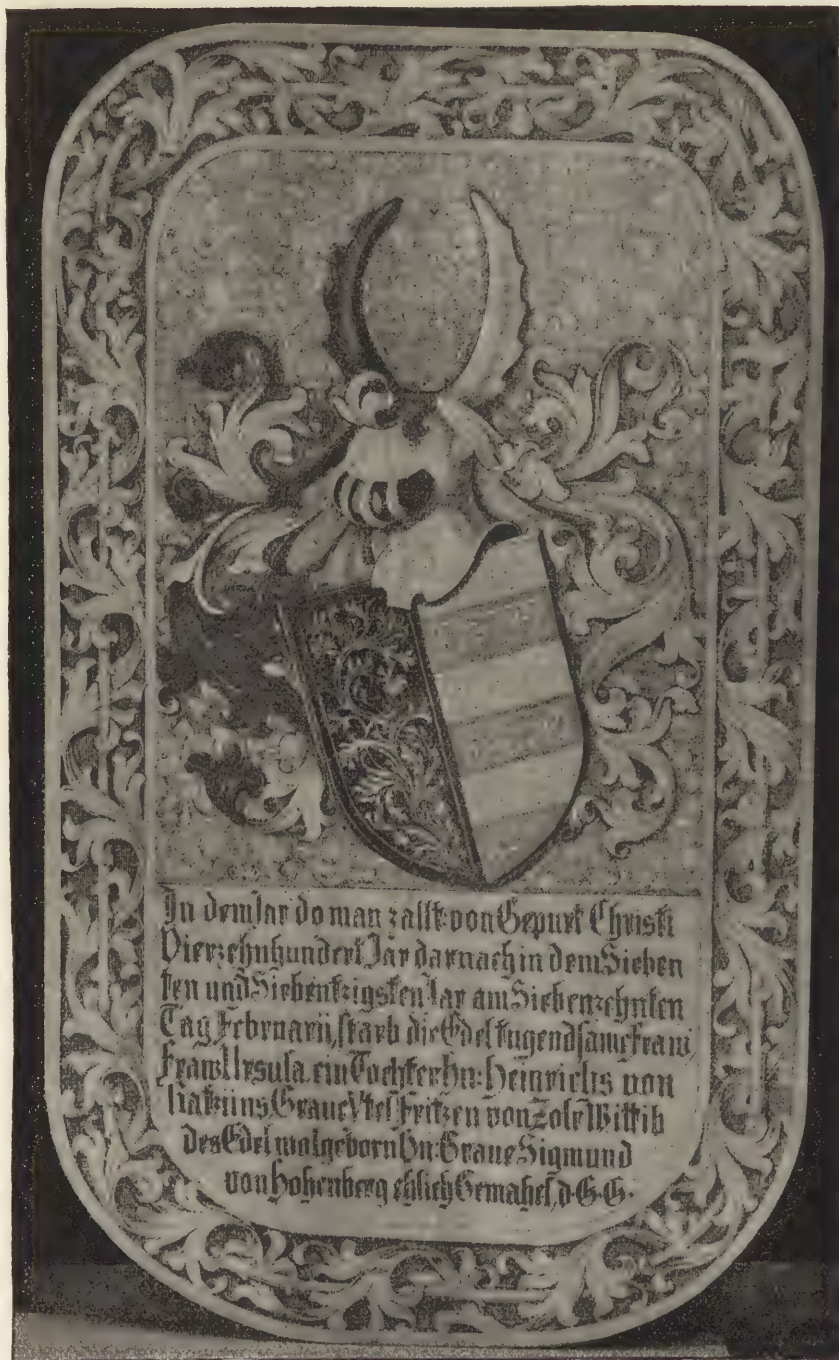 In dem Jar do man zallt von Gepurt Christi
Vierzehnhundert Jar darnach in dem Sieben
ten und Siebentzigsten Jar am Siebenzehnten
Tag Februarii, starb die Edel tugendsame Fraw,
Fraw Ursula, ein Tochter Hn: Heinrichs von
Graue Vtel Fritzen von Zolr Wittib
des Edel wolgeborn Hn: Graue Sigmund
von Hohenberg ehlich Gemahel, d. G. G.